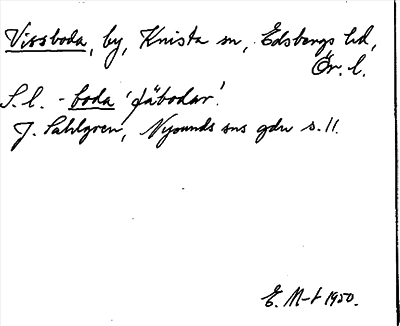 Vissboda, by, Knista sn, Edsbergs hd,
Ör. l.
S. l. - boda 'fäbodar'.
J. Sahlgren, Nysunds sns gdn s. 11.
E. M-t 1950.